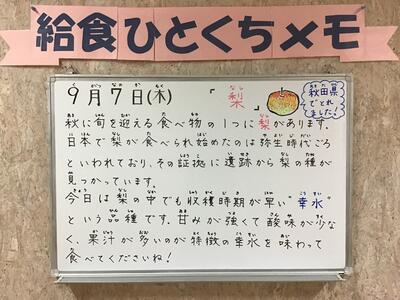 給食ひとくちメモ
9月7日(木) 「梨」
秋田県でとれました!
秋に旬を迎える食べ物の1つに梨があります。
日本で梨が食べられ始めたのは弥生時代ごろ
といわれており、その証拠に遺跡から梨の種が
見つかっています。
今日は梨の中でも収穫時期が早い"幸水"
という品種です。甘みが強くて酸味が少な
く、果汁が多いのが特徴の幸水を味わって
食べてくださいね!